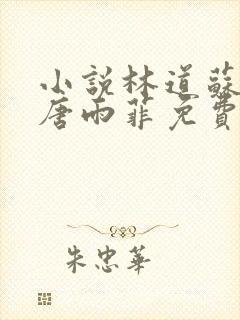 小說林道蘇
唐雨菲免費
朱忠華